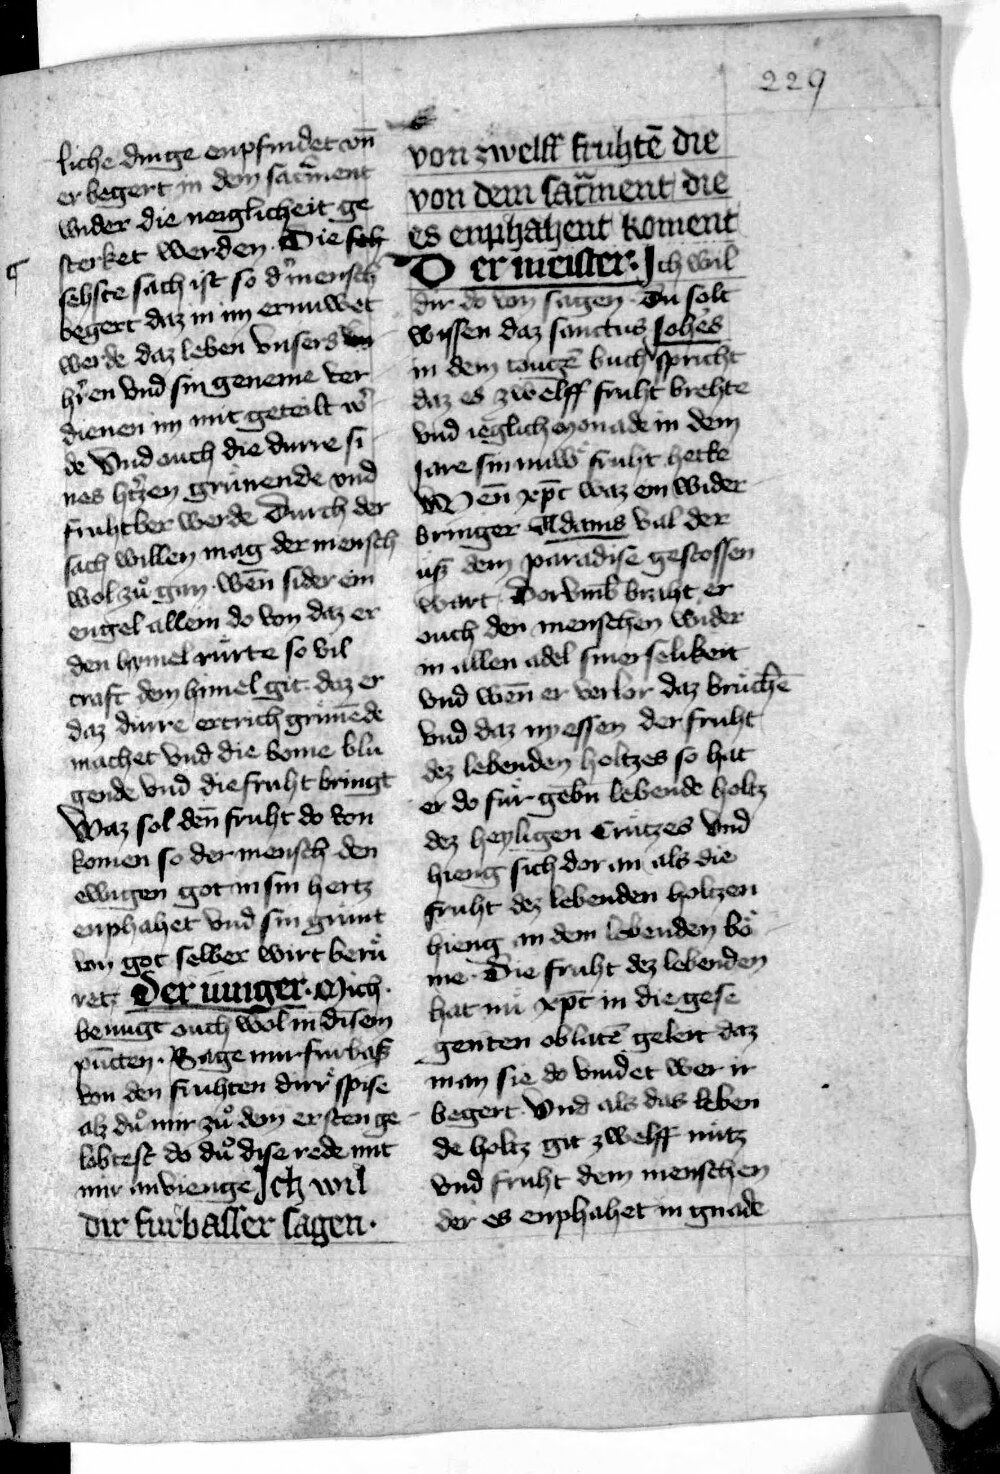 229
liche dinge enpfindet vn̄
er begert in dem sacr̄ment
wider die neiglicheit ge
sterket werden. Die seh
sehste sach ist so d' mensch
begert daz in im ernuwet
werde daz leben vnsers
hr̄en vnd sin geneme ver
dienen im mit geteilt w'
de Vnd ouch die durre si
nes htz̄en grůnende vnd
fruhtber werde Durch der
sach willen mag der mensch
wol zů gan. wēn sider ein
engel allein do von daz er
den hymel růrte so vil
craft dem himel git. daz er
daz durre ertrich grůnēde
machet vnd die bome blů
gende vnd die fruht bringt
Waz sol dēn fruht do von
komen so der mensch den
ewigen got in sin hertz
enphahet vnd sin grunt
von got selber wirt berů
retz Der iunger. Mich
benugt ouch wol in disem
pūcten. Sage mir furbaß
von den fruhten dirr' spise
alz dů mir zů dem ersten ge
lobtest do dů dise rede mit
mir anvienge Ich wil
dir furbasser sagen.
von zwelff fruhtē die
von dem sacr̄ment die
es enphahent koment
Der meister. Ich wil
dir do von sagen. Du solt
wissen daz sanctus Johēs
in dem tougē buch spricht
daz es zwelff fruht brehte
vnd ieglich monade in dem
jare sin nuw' fruht hette
Wēn xp̄c waz ein wider
bringer Adams val der
uß dem paradise gestossen
wart. Dorvmb braht er
ouch den menschen wider
in allen adel siner selikeit
vnd wēn er verlor daz bruchē
vnd daz nyessen der fruht
dez lebenden holtzes so hat
er do fur gebn lebende holtz
dez heyligen Crutzes vnd
hieng sich dor an als die
fruht dez lebenden holtzen
hieng an dem lebenden bo
me. Die fruht dez lebenden
hat nů xp̄c in die gese
genten oblatē geleit daz
man sie do vindet wer ir
begert. Vnd als das leben
de holtz git zwelff nutz
vnd fruht dem menschen
der es enphahet in gnade